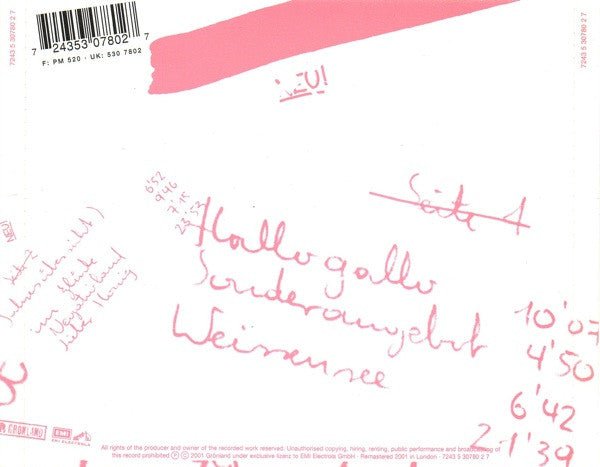 7243 5 30780 2 7
7 24353 07802 7
F: PM 520 · UK: 530 7802
7243 5 30780 2 7
NEU!
Seite 1
6'52
9'46
7'15
23'53
Hallogallo
Sonderangebot
Weissensee
10'07
4'50
6'42
21'39
NEU!
Seite 2
im Glück
Negativland
Lieber Honig
GRÖNLAND
EMI
EMI ELECTROLA
All rights of the producer and owner of the recorded work reserved. Unauthorised copying, hiring, renting, public performance and broadcasting of
this record prohibited Ⓟ © 2001 Grönland under exclusive licenz to EMI Electrola GmbH · Remastered 2001 in London · 7243 5 30780 2 7